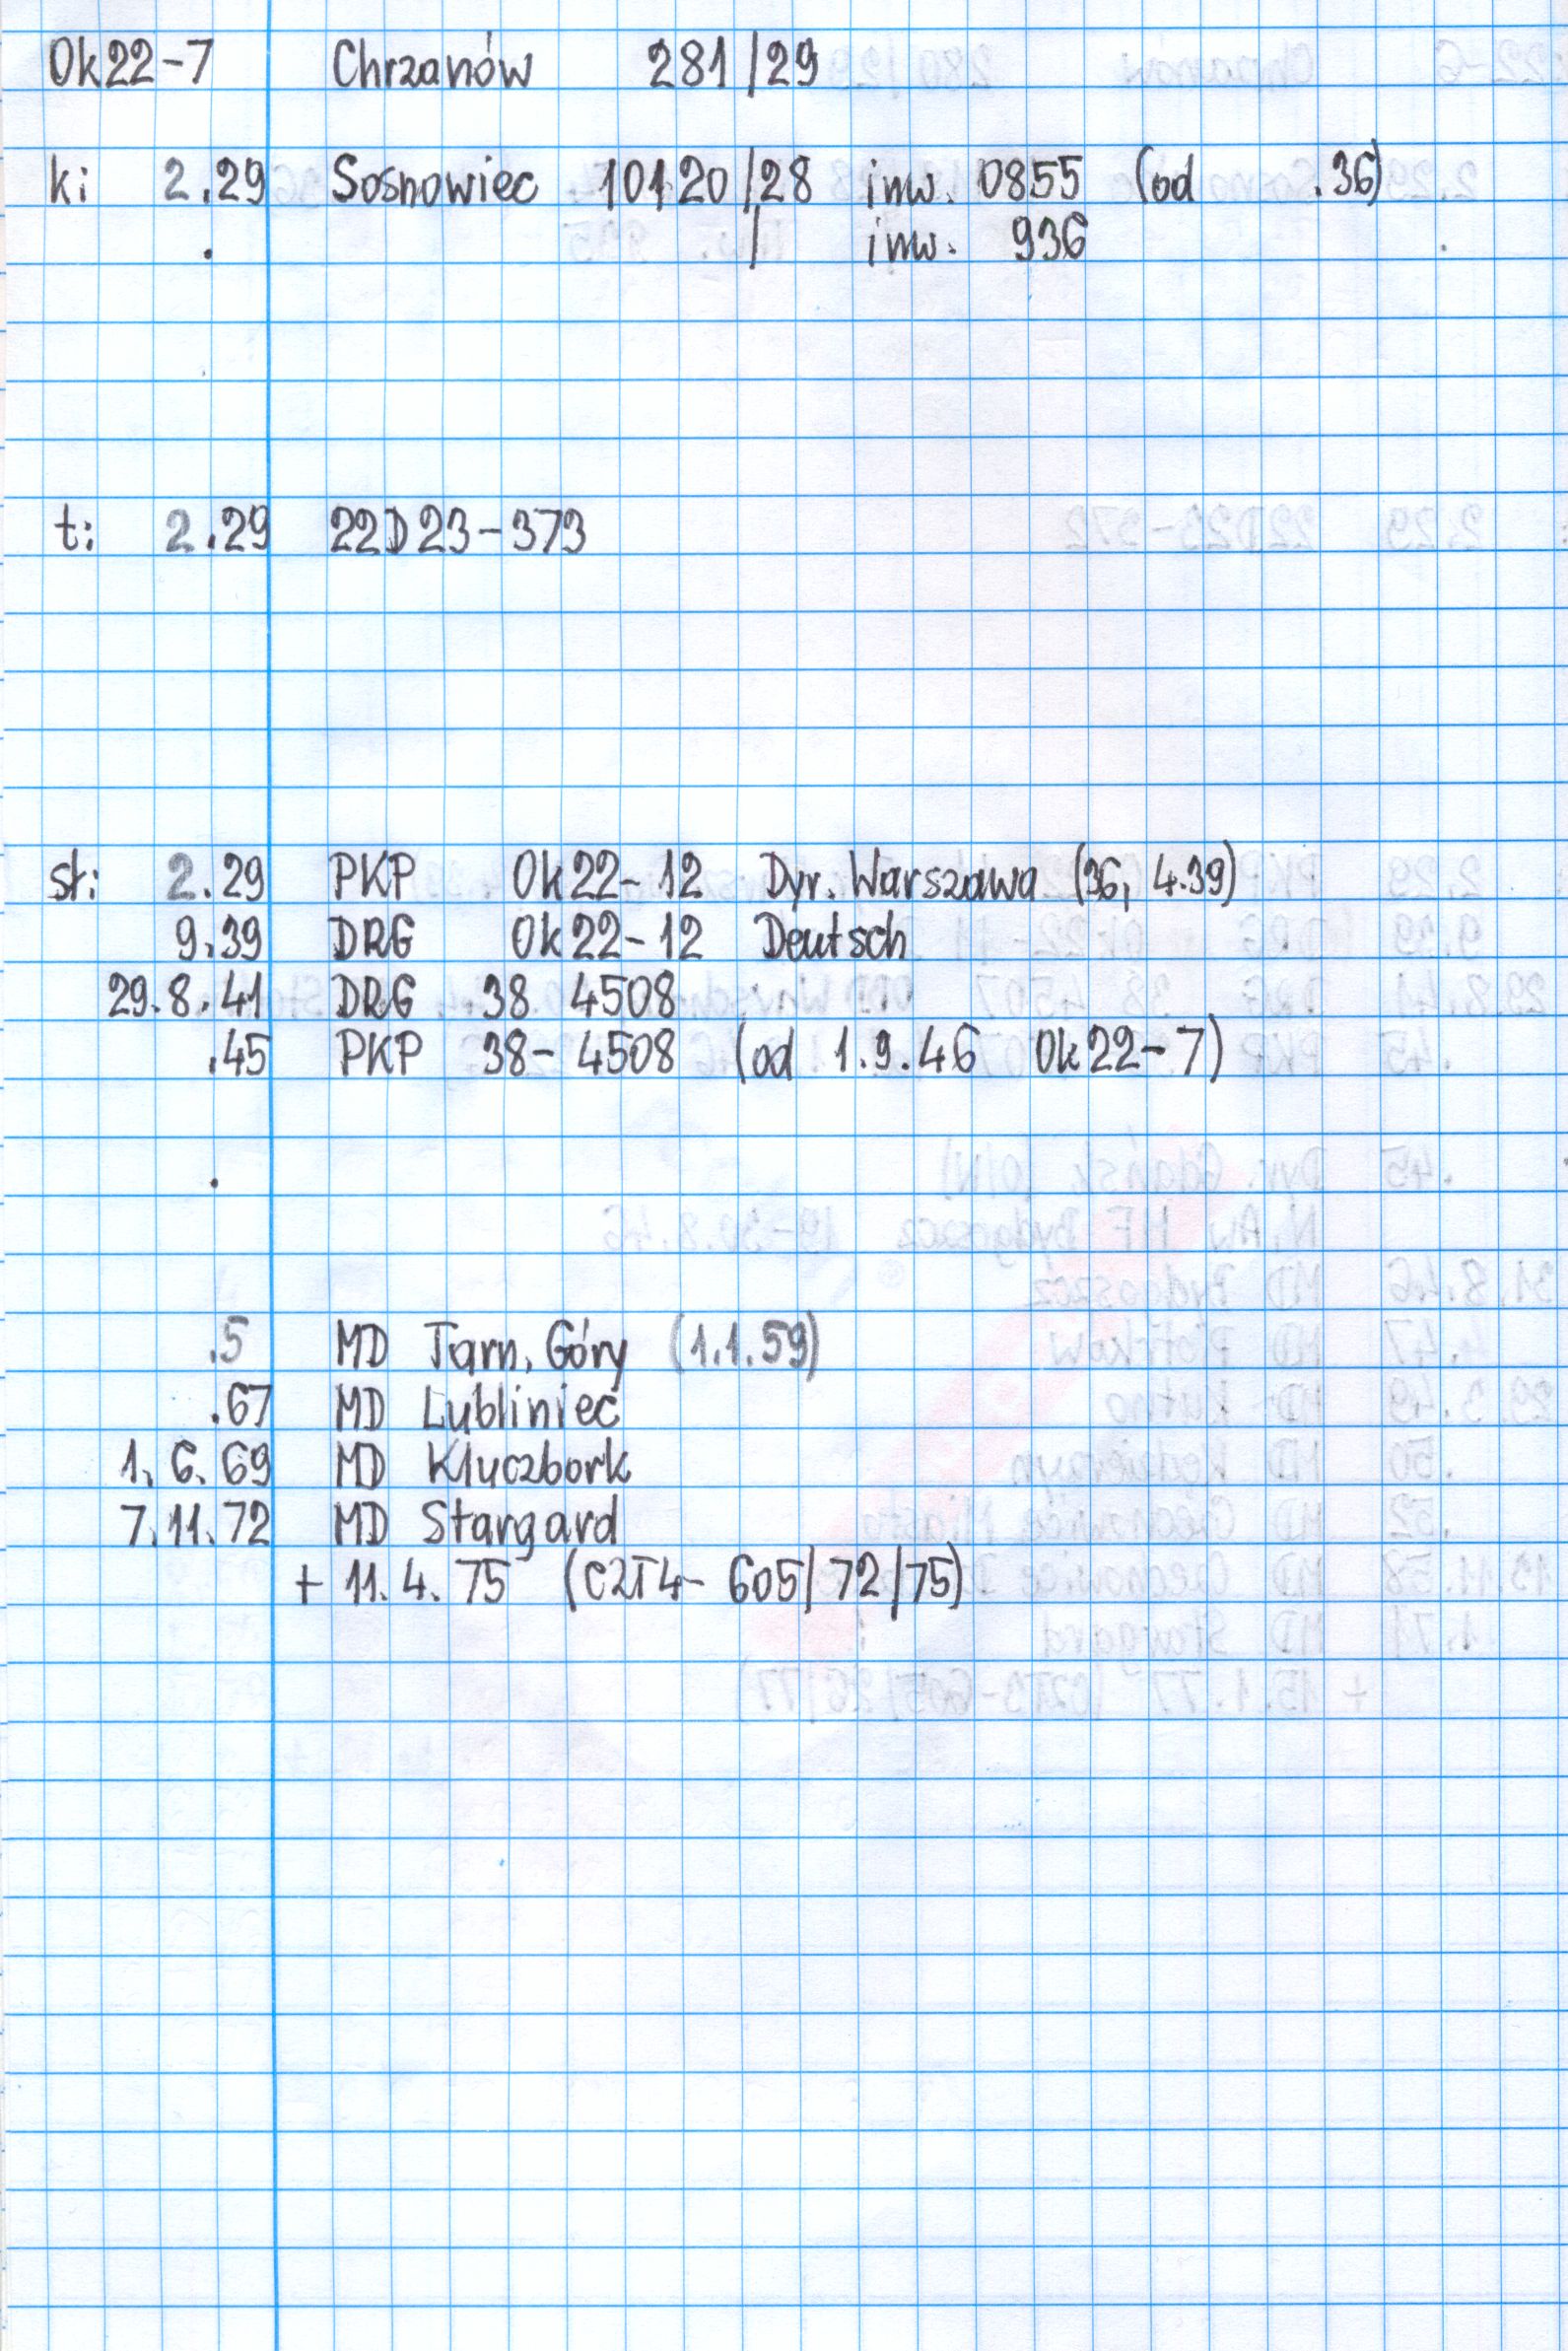 Ok22-7 Chrzanów 281/29
ki 2.29 Sosnowiec 10120/28 inw. 0855 (od .36)
. / inw. 936
t: 2.29 22D23-373
st: 2.29 PKP Ok22-12 Dyr. Warszawa (36, 4.39)
9.39 DRG Ok22-12 Deutsch
29.8.41 DRG 38 4508
.45 PKP 38-4508 (od 1.9.46 Ok22-7)
.
.5 MD Tarn. Góry (1.1.59)
.67 MD Lubliniec
1.6.69 MD Kluczbork
7.11.72 MD Stargard
+ 11.4.75 (C2T4-605/72/75)